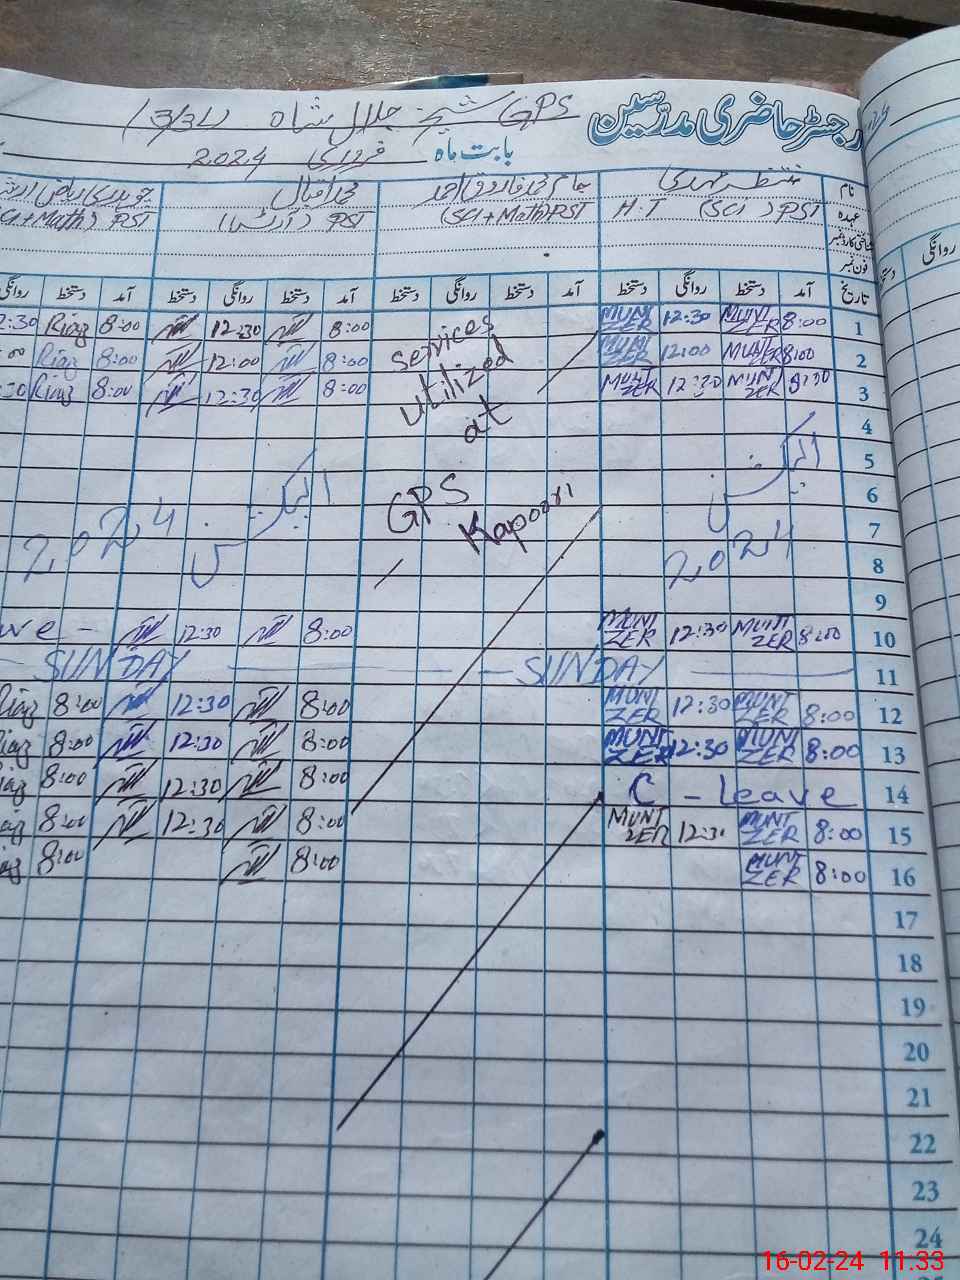 رجسٹر حاضری مدرسین
GPS شیخ جلال شاہ (3/31)
بابت ماہ فروری 2024
نام منتظر مہدی محمد فاروق احمد محمد اقبال چوہدری ریاض
عہدہ H.T (SCI) PST (SCI + Math) PST (آرٹس) PST + Math) PST
شناختی کارڈ نمبر
فون نمبر
تاریخ آمد دستخط روانگی دستخط آمد دستخط روانگی دستخط آمد دستخط روانگی دستخط آمد دستخط روانگی
1 8:00 MUNT ZER 12:30 MUNT ZER 8:00 12:30 8:00 Riaz 2:30
2 8:00 MUNT ZER 12:00 MUNT ZER 8:00 12:00 8:00 Riaz :00
3 8:00 MUNT ZER 12:30 MUNT ZER 8:00 12:30 8:00 Riaz :30
services
utilized
at
GPS
Kapoori
4
5
6
7
8
9
الیکشن 2024 الیکشن 2024
10 8:00 MUNT ZER 12:30 MUNT ZER 8:00 12:30 ave -
11 SUNDAY SUNDAY
12 8:00 MUNT ZER 12:30 MUNT ZER 8:00 12:30 8:00 Riaz
13 8:00 MUNT ZER 12:30 MUNT ZER 8:00 12:30 8:00 iaz
14 C - Leave 8:00 12:30 8:00 iaz
15 8:00 MUNT ZER 12:30 MUNT ZER 8:00 12:30 8:00 iaz
16 8:00 MUNT ZER 8:00 8:00 iaz
17
18
19
20
21
22
23
24
روانگی
16-02-24 11.33